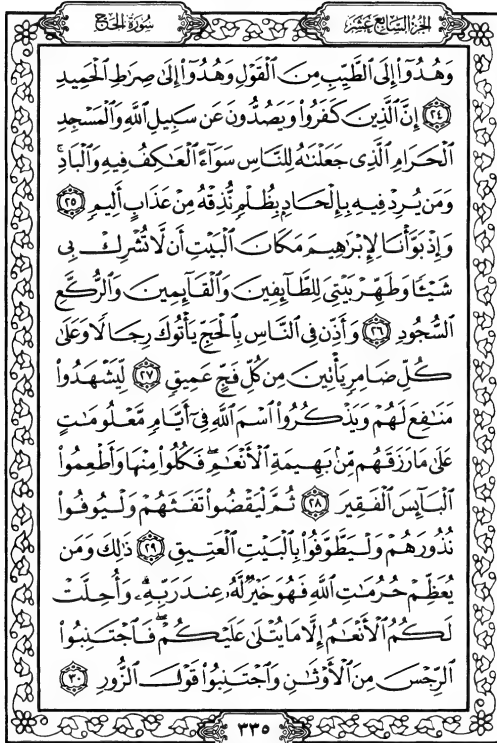 سُورَةُ الحَجِّ
الجُزءُ السَّابِعَ عَشَرَ
وَهُدُوٓا۟ إِلَى ٱلطَّيِّبِ مِنَ ٱلْقَوْلِ وَهُدُوٓا۟ إِلَىٰ صِرَٰطِ ٱلْحَمِيدِ
٢٤ إِنَّ ٱلَّذِينَ كَفَرُوا۟ وَيَصُدُّونَ عَن سَبِيلِ ٱللَّهِ وَٱلْمَسْجِدِ
ٱلْحَرَامِ ٱلَّذِى جَعَلْنَٰهُ لِلنَّاسِ سَوَآءً ٱلْعَٰكِفُ فِيهِ وَٱلْبَادِ ۚ
وَمَن يُرِدْ فِيهِ بِإِلْحَادٍۭ بِظُلْمٍ نُّذِقْهُ مِنْ عَذَابٍ أَلِيمٍ ٢٥
وَإِذْ بَوَّأْنَا لِإِبْرَٰهِيمَ مَكَانَ ٱلْبَيْتِ أَن لَّا تُشْرِكْ بِى
شَيْـًٔا وَطَهِّرْ بَيْتِىَ لِلطَّآئِفِينَ وَٱلْقَآئِمِينَ وَٱلرُّكَّعِ
ٱلسُّجُودِ ٢٦ وَأَذِّن فِى ٱلنَّاسِ بِٱلْحَجِّ يَأْتُوكَ رِجَالًا وَعَلَىٰ
كُلِّ ضَامِرٍ يَأْتِينَ مِن كُلِّ فَجٍّ عَمِيقٍ ٢٧ لِّيَشْهَدُوا۟
مَنَٰفِعَ لَهُمْ وَيَذْكُرُوا۟ ٱسْمَ ٱللَّهِ فِىٓ أَيَّامٍ مَّعْلُومَٰتٍ
عَلَىٰ مَا رَزَقَهُم مِّنۢ بَهِيمَةِ ٱلْأَنْعَٰمِ ۖ فَكُلُوا۟ مِنْهَا وَأَطْعِمُوا۟
ٱلْبَآئِسَ ٱلْفَقِيرَ ٢٨ ثُمَّ لْيَقْضُوا۟ تَفَثَهُمْ وَلْيُوفُوا۟
نُذُورَهُمْ وَلْيَطَّوَّفُوا۟ بِٱلْبَيْتِ ٱلْعَتِيقِ ٢٩ ذَٰلِكَ وَمَن
يُعَظِّمْ حُرُمَٰتِ ٱللَّهِ فَهُوَ خَيْرٌ لَّهُۥ عِندَ رَبِّهِۦ ۗ وَأُحِلَّتْ
لَكُمُ ٱلْأَنْعَٰمُ إِلَّا مَا يُتْلَىٰ عَلَيْكُمْ ۖ فَٱجْتَنِبُوا۟
ٱلرِّجْسَ مِنَ ٱلْأَوْثَٰنِ وَٱجْتَنِبُوا۟ قَوْلَ ٱلزُّورِ ٣٠
٣٣٥